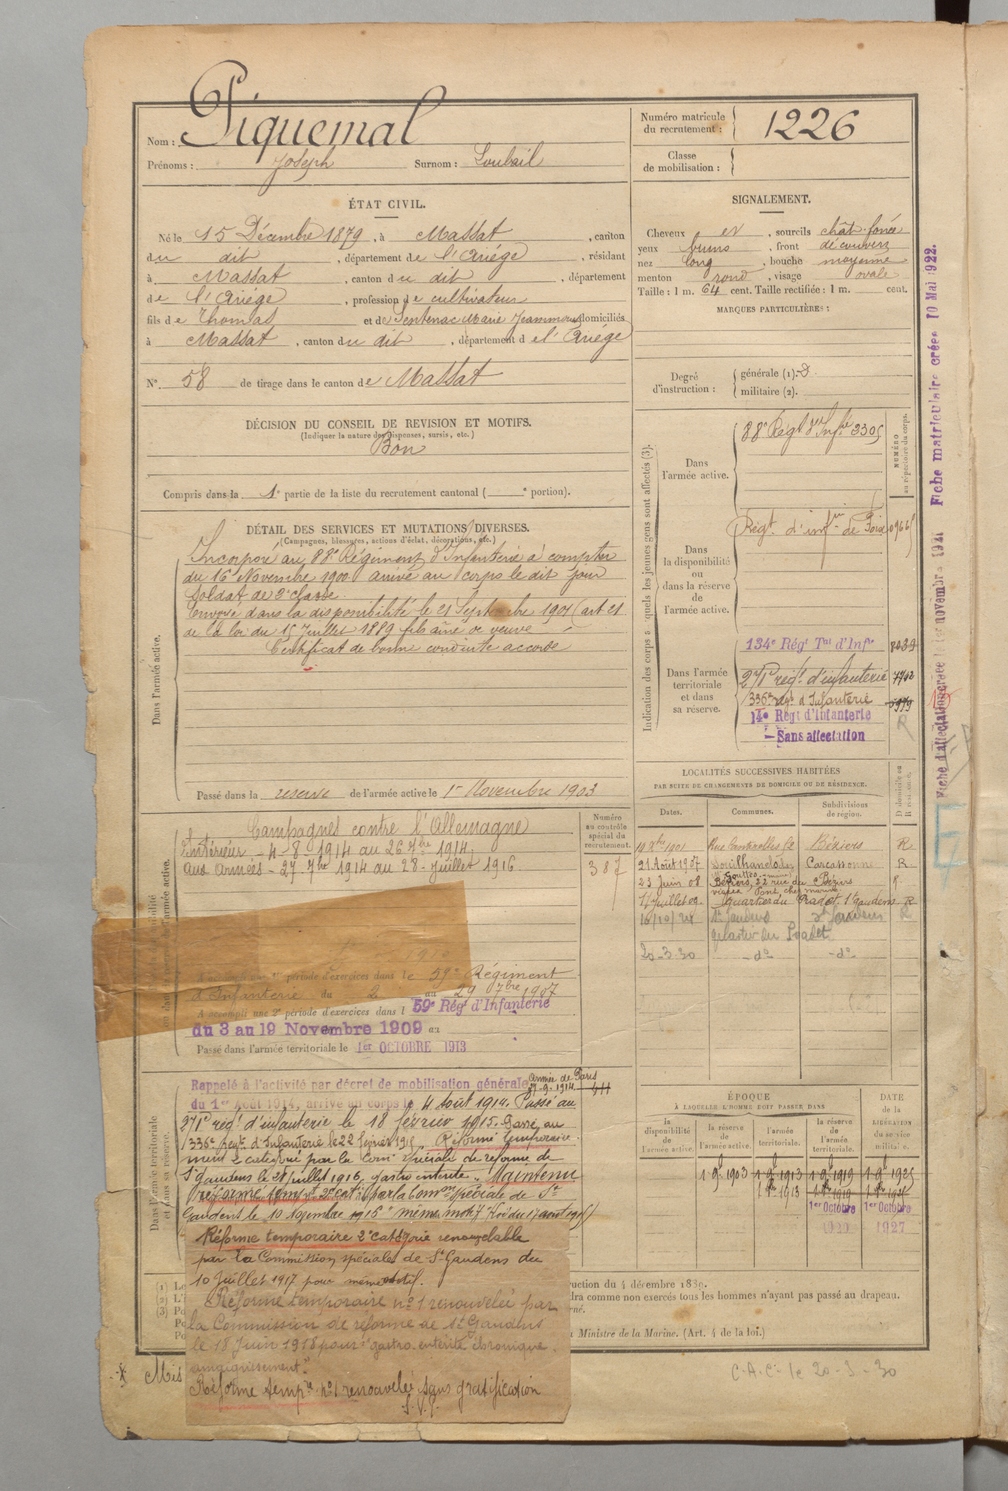 Nom : Piquemal
Prénoms : Joseph Surnom : Loubail
Numéro matricule du recrutement : 1226
Classe de mobilisation :
ÉTAT CIVIL.
Né le 15 Décembre 1879, à Massat, canton
du dit, département de l'Ariège, résidant
à Massat, canton du dit, département
de l'Ariège, profession de cultivateur
fils de Thomas et de Sentenac Marie Jeanne domiciliés
à Massat, canton du dit, département de l'Ariège
N° 58 de tirage dans le canton de Massat
SIGNALEMENT.
Cheveux et, sourcils chât. foncé
yeux bruns, front découvert
nez long, bouche moyenne
menton rond, visage ovale
Taille : 1 m. 64 cent. Taille rectifiée : 1 m. cent.
MARQUES PARTICULIÈRES :
Degré d'instruction : générale (1). 3
militaire (2).
DÉCISION DU CONSEIL DE REVISION ET MOTIFS.
(Indiquer la nature des dispenses, sursis, etc.)
Bon
Compris dans la 1e partie de la liste du recrutement cantonal ( e portion).
DÉTAIL DES SERVICES ET MUTATIONS DIVERSES.
(Campagnes, blessures, actions d'éclat, décorations, etc.)
Dans l'armée active.
Incorporé au 88e Régiment d'Infanterie à compter
du 16 Novembre 1900 arrivé au corps le dit jour
Soldat de 2e classe.
Envoyé dans la disponibilité le 21 Septembre 1901 (art 21
de la loi du 15 Juillet 1889 fils aîné de veuve
Certificat de bonne conduite accordé
Passé dans la réserve de l'armée active le 1er Novembre 1903
Indication des corps auxquels les jeunes gens sont affectés (3).
NUMÉRO au répertoire du corps.
Dans l'armée active.
88e Régt d'Infie 3305
Dans la disponibilité ou dans la réserve de l'armée active.
Régt. d'infie de Foix
Dans l'armée territoriale et dans sa réserve.
134e Régt Tal d'Infie
271e régt. d'infanterie 7702
336e régt d'Infanterie
14e Régt d'Infanterie
Sans affectation R
Fiche matriculaire créée 10 Mai 1922.
LOCALITÉS SUCCESSIVES HABITÉES
PAR SUITE DE CHANGEMENTS DE DOMICILE OU DE RÉSIDENCE.
Dates. Communes. Subdivisions de région. D domicile ou R résidence.
Béziers R
21 Août 1907 Carcassonne R
23 Juin 08 Béziers, 22 rue du Béziers R
1 Juillet 09 quartier du Pradet St gaudens R
16/10/24 St Gaudens St Gaudens R
quartier du Pradet
20-3-30 -do- -do-
Campagnes contre l'Allemagne
Intérieur - 4-8-1914 au 26 7bre 1914
Aux Armées - 27 7bre 1914 au 28 Juillet 1916
Numéro au contrôle spécial du recrutement.
387
A accompli une 1e période d'exercices dans le 59e Régiment
d'Infanterie du 2 au 29 7bre 1907
A accompli une 2e période d'exercices dans l 59e Régt d'Infanterie
du 3 au 19 Novembre 1909 au
Passé dans l'armée territoriale le 1er OCTOBRE 1913
Dans l'armée territoriale et dans sa réserve.
Rappelé à l'activité par décret de mobilisation générale Armée de Paris
27.9.1914
du 1er Août 1914, arrivé au corps le 4 août 1914. Passé au
271e régt. d'infanterie le 18 février 1915. Passé au
336e Regt d'Infanterie le 22 février 1915. Réformé temporaire-
ment 2e catégorie par la Comon spéciale de réforme de
St gaudens le 28 juillet 1916, gastro entérite. Maintenu
réformé tempre 2e catie par la Comon spéciale de St
Gaudens le 10 novembre 1916 même motif
Réforme temporaire 2e catégorie renouvelable
par la Commission spéciale de St Gaudens du
10 Juillet 1917 pour même motif.
Réforme temporaire n°1 renouvelée par
la Commission de réforme de St Gaudens
le 18 Juin 1918 pour "gastro-entérite chronique
amaigrissement"
Réforme tempre n°1 renouvelée sans gratification
ÉPOQUE
À LAQUELLE L'HOMME DOIT PASSER DANS
DATE de la LIBÉRATION du service militaire.
la disponibilité de l'armée active. la réserve de l'armée active. l'armée territoriale. la réserve de l'armée territoriale.
1 9 1903 1 9 1913 1 9 1919 1 9 1925
1er Octobre 1er Octobre
1920 1927
ruction du 4 décembre 1889.
dra comme non exercés tous les hommes n'ayant pas passé au drapeau.
u Ministre de la Marine. (Art. 4 de la loi.)
Mis
C.A.C. le 20-3-30